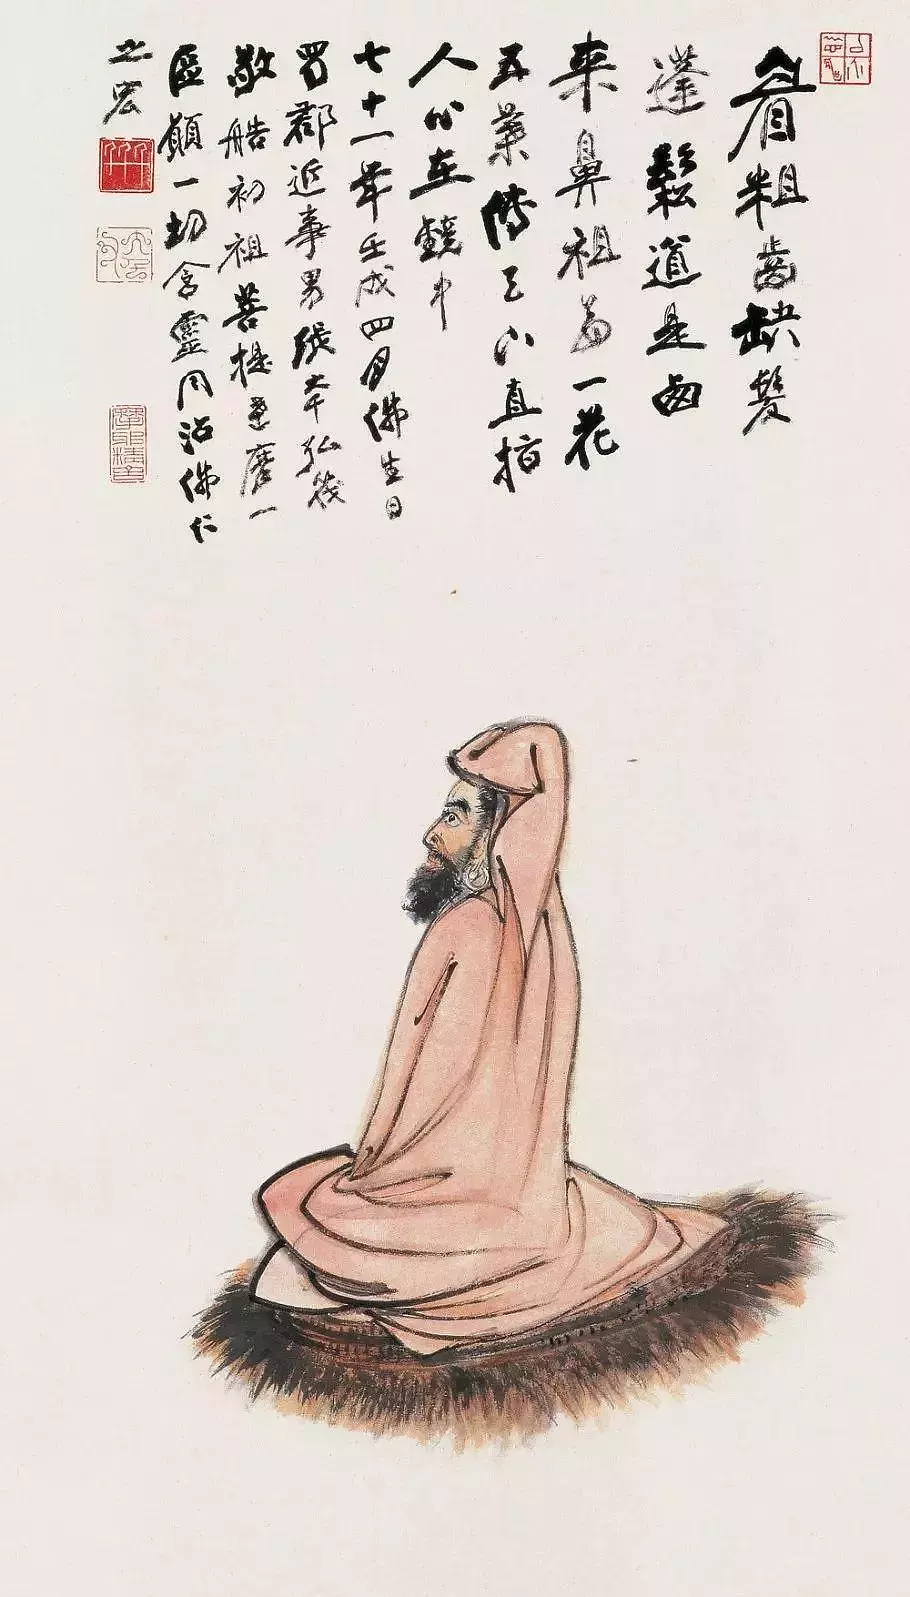 眉粗齒缺髮
蓬鬆道是西
來鼻祖翁一花
五葉傳已久直指
人心在鏡中
七十一年壬戌四月佛生日
蜀郡近事男張大千弘筏
敬艁初祖菩提達摩一
區願一切含靈同沾佛仁
之宏
摩耶精舍